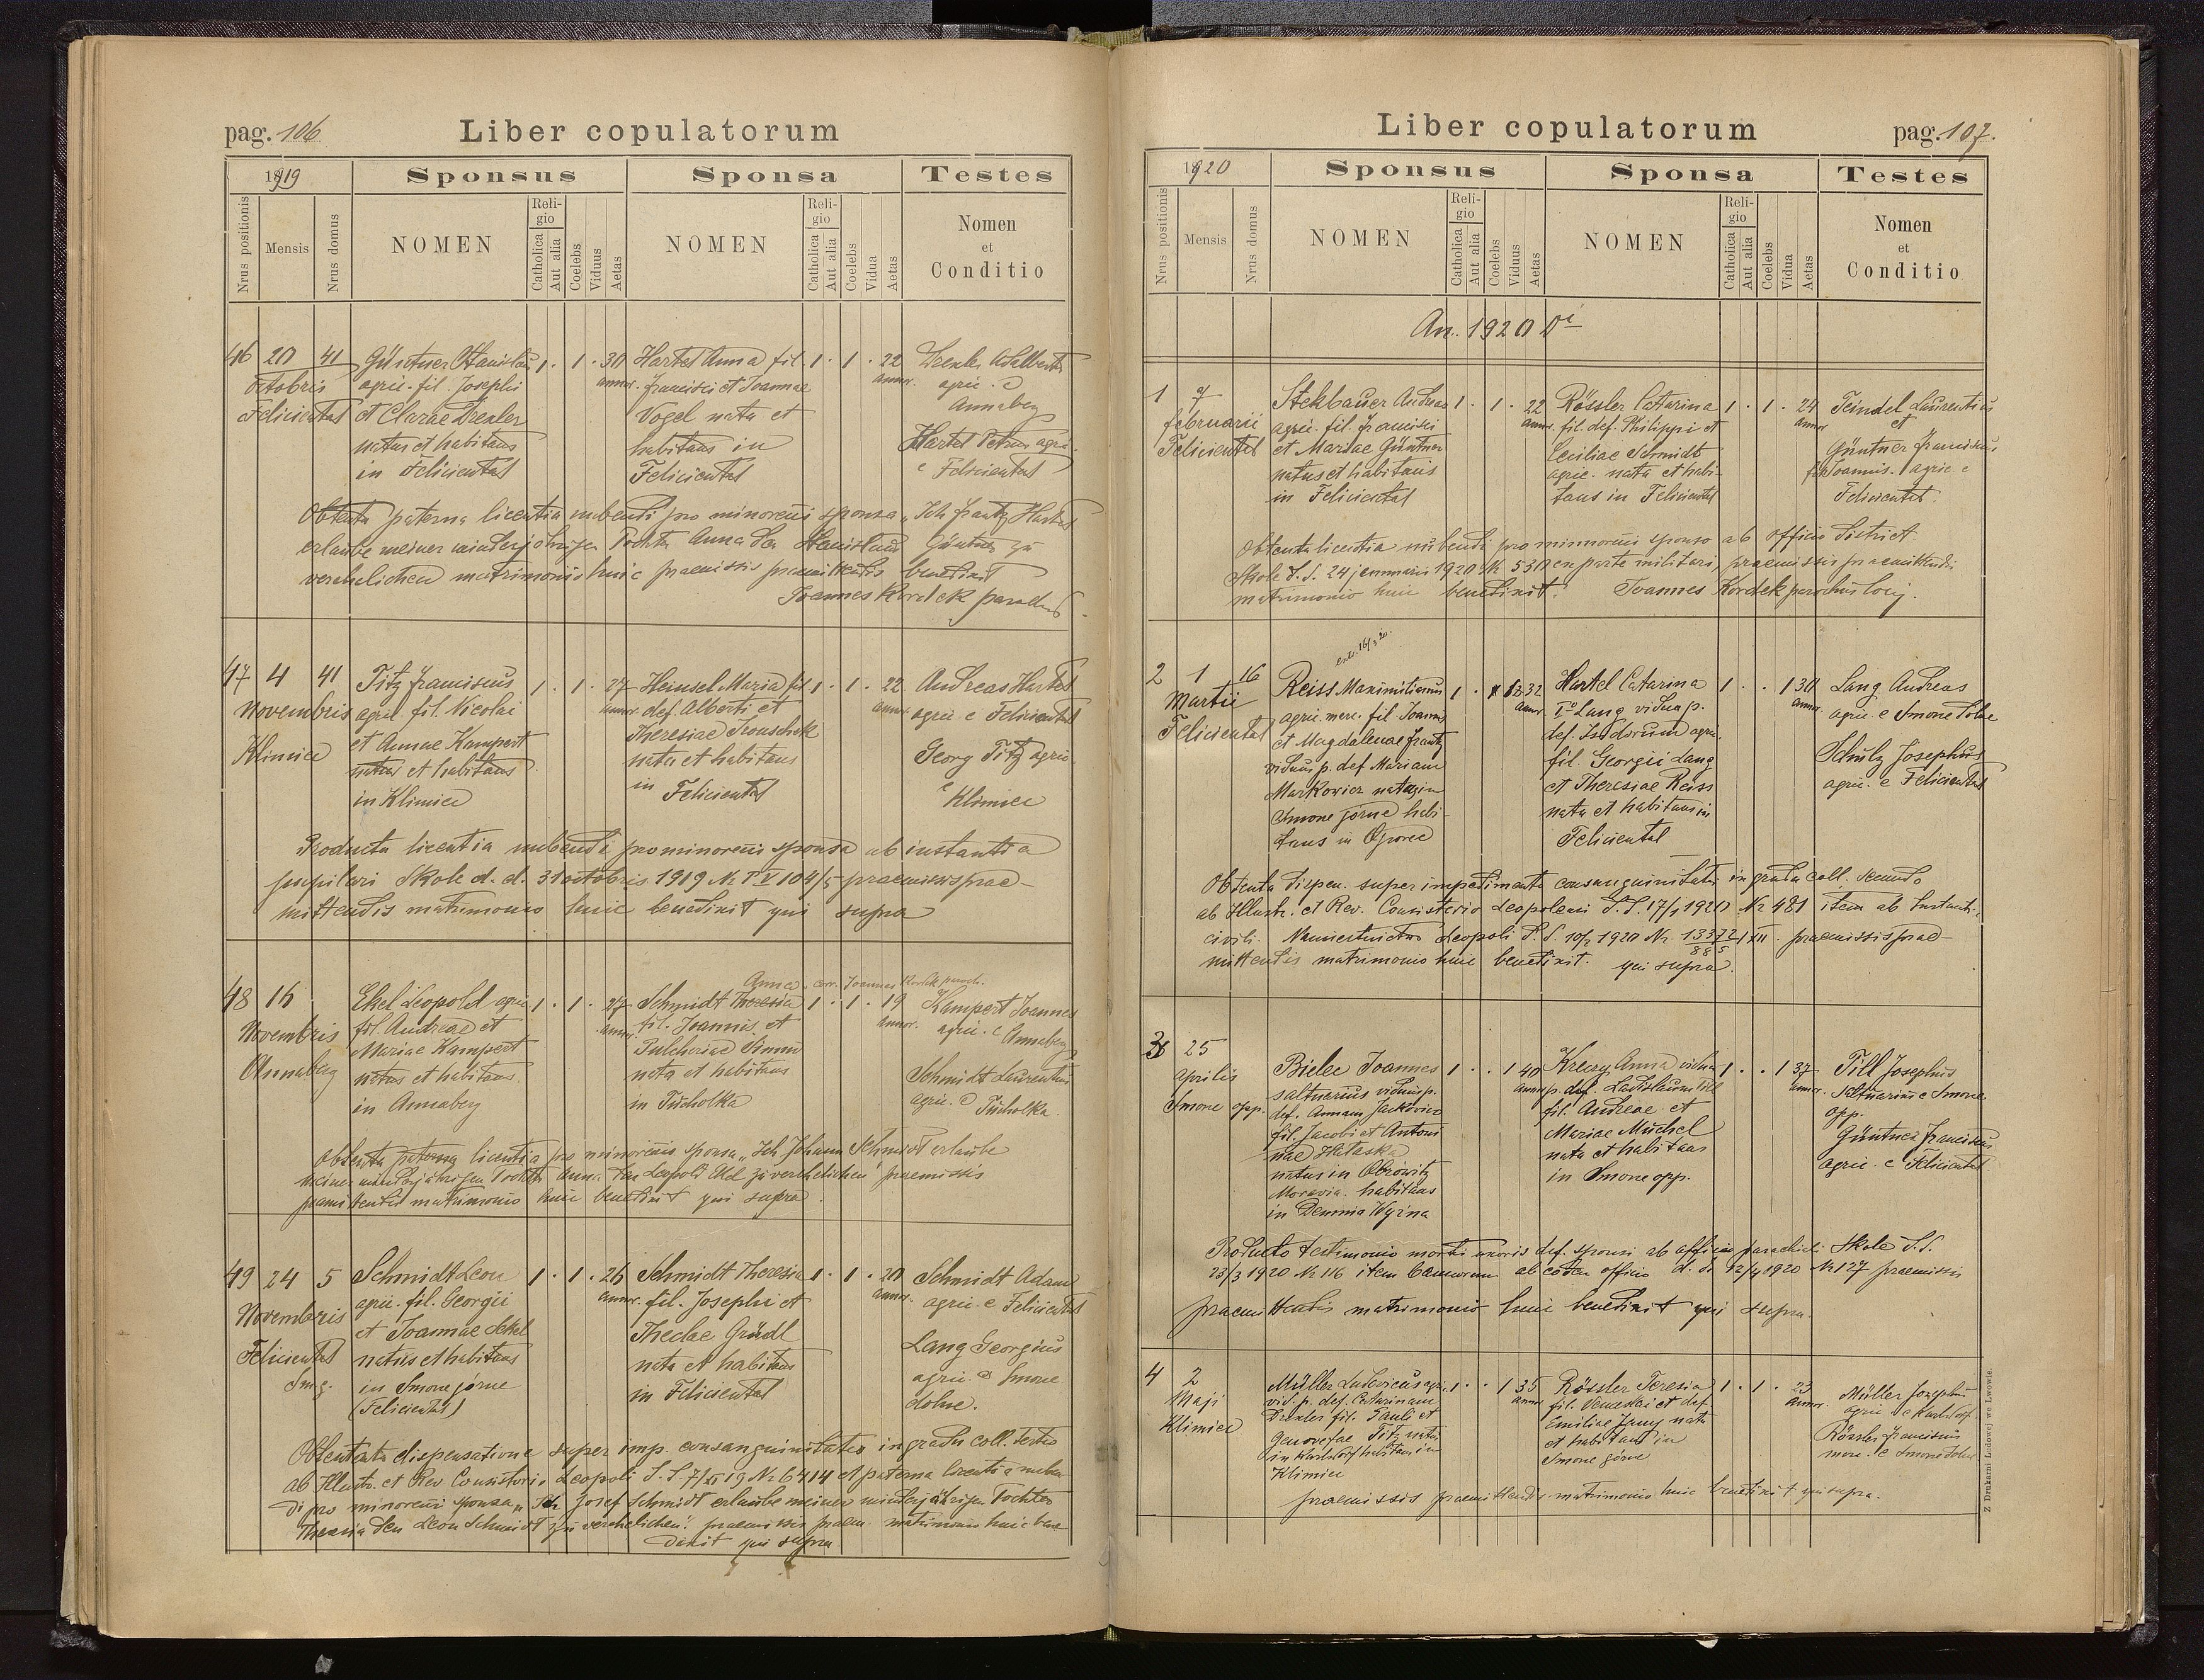 pag. 106
Liber copulatorum
1919
Sponsus
Sponsa
Testes
Nrus positionis
Mensis
Nrus domus
NOMEN
Religio
Catholica
Aut alia
Coelebs
Viduus
Aetas
NOMEN
Religio
Catholica
Aut alia
Coelebs
Vidua
Aetas
Nomen
et
Conditio
46 20 41
Octobris
Felicienthal
Güntner Stanislaus
agric. fil. Josephi
et Clarae Drexler
natus et habitans
in Felicienthal
1 · 1 · 30
annor.
Hartel Anna fil.
Francisci et Joannae
Vogel nata et
habitans in
Felicienthal
1 · 1 · 22
annor.
Drexler Adalbertus
agric. e
Annaberg
Hartel Petrus agric.
e Felicienthal
Obtenta paterna licentia nubendi pro minorenni sponsa „Ich Frantz Hartel
erlaube meiner minderjährigen Tochter Anna den Stanislaus Güntner zu
verehelichen matrimonio huic praemissis praemittendis benedixit
Joannes Kordek parochus
47 4 41
Novembris
Klimiec
Titz Franciscus
agric. fil. Nicolai
et Annae Kampert
natus et habitans
in Klimiec
1 · 1 · 27
annor.
Heinsel Maria fil.
def. Alberti et
Theresiae
nata et habitans
in Felicienthal
1 · 1 · 22
annor.
Andreas Hartel
agric. e Felicienthal
Georg Titz agric.
e Klimiec
Producta licentia nubendi pro minorenni sponsa ab instantia
pupilari Skole d. d. 31 octobris 1919 Nr P V 104/5 praemissis prae-
mittendis matrimonio huic benedixit qui supra
48 16
Novembris
Annaberg
Ekel Leopold agric.
fil. Andreae et
Mariae Kampert
natus et habitans
in Annaberg
1 · 1 · 27
annor.
Anna corr. Joannes Kordek paroch.
Schmidt Theresia
fil. Joannis et
Pulcheriae
nata et habitans
in Tucholka
1 · 1 · 19
annor.
Kampert Joannes
agric. e Annaberg
Schmidt Laurentius
agric. e Tucholka.
Obtenta paterna licentia pro minorenni sponsa „Ich Johann Schmidt erlaube
meiner minderjährigen Tochter Anna den Leopold Ekel zu verehelichen" praemissis
praemittendis matrimonio huic benedixit qui supra
49 24 5
Novembris
Felicienthal
Smg.
Schmidt Leon
agric. fil. Georgii
et Joannae Ekel
natus et habitans
in Smorze górne
(Felicienthal)
1 · 1 · 26
annor.
Schmidt Theresia
fil. Josephi et
Theclae Gradl
nata et habitans
in Felicienthal
1 · 1 · 20
annor.
Schmidt Adam
agric. e Felicienthal
Lang Georgius
agric. e Smorze
dolne.
Obtenta dispensatione super imp. consanguinitatis in gradu coll. tertio
ab Illustr. et Rev Consistorio Leopoli d. d. 7/XI 19 Nr 6414 et paterna licentia nuben-
di pro minorenni sponsa „Ich Josef Schmidt erlaube meiner minderjährigen Tochter
Theresia den Leon Schmidt zu verehelichen". praemissis praem. matrimonio huic bene-
dixit qui supra
Liber copulatorum
pag. 107.
1920
Sponsus
Sponsa
Testes
Nrus positionis
Mensis
Nrus domus
NOMEN
Religio
Catholica
Aut alia
Coelebs
Viduus
Aetas
NOMEN
Religio
Catholica
Aut alia
Coelebs
Vidua
Aetas
Nomen
et
Conditio
An. 1920 Di
1 7
februarii
Felicienthal
Stekbauer Andreas
agric. fil. Francisci
et Mariae Güntner
natus et habitans
in Felicienthal
1 · 1 · 22
annor.
Rössler Catarina
fil. def. Philippi et
Ceciliae Schmidt
agric. nata et habi-
tans in Felicienthal
1 · 1 · 24
annor.
Teindel Laurentius
et
Güntner Franciscus
fil. Joannis. agric. e
Felicienthal.
Obtenta licentia nubendi pro minorenni sponso ab officio district.
Skole d. d. 24 januarii 1920 Nr 530 ex parte militari, praemissis praemittendis
matrimonio huic benedixit. Joannes Kordek parochus loci.
2 1 16
Martii
Felicienthal
Reiss Maximilianus
agric. merc. fil. Joannis
et Magdalenae Frantz
viduus p. def Mariam
Markowicz natus in
Smorze górne habi-
tans in Oporec
32
annor.
Hartel Catarina
Iº Lang vidua p.
def. Isidorum agric.
fil. Georgii Lang
et Theresiae Reiss
nata et habitans in
Felicienthal
1 · · 1 30
annor.
Lang Andreas
agric. e Smorze dolne
Schulz Josephus
agric. e Felicienthal
Obtenta dispen. super impedimento consanguinitatis in gradu coll. secundo
ab Illustr. et Rev. Consistorio Leopoliensi d. d. 17/1 1920 Nr 481 item ab Instantia
civili. Namiestnictwo Leopoli d. d. 10/2 1920 Nr. 13372/885 XII. praemissis prae-
mittendis matrimonio huic benedixit. qui supra.
3 25
Aprilis
Smorze opp.
Bielec Joannes
saltuarius viduus p.
def. Annam Jackowicz
fil. Jacobi et Antoni
nae Hataska
natus in Obrowitz
Moravia. habitans
in Demnia Wyżna
1 · · 1 40
annor.
Kreczy Anna vidua
p. def. Ladislaum Till
fil. Andreae et
Mariae Michel
nata et habitans
in Smorze opp.
1 · · 1 37
annor.
Till Josephus
saltuarius e Smorze
opp.
Güntner Franciscus
agric. e Felicienthal
Producto testimonio mortis uxoris def. sponsi ab officio parochiali Skole d. d.
23/3 1920 Nr 116 item bannorum ab eodem officio d. d. 12/4 1920 Nr 127 praemissis
praemittendis matrimonio huic benedixit qui supra.
4 2
Maji
Klimiec
Müller Ludovicus agric.
vid. p. def. Catharinam
Drexler fil. Pauli et
Genovefae Titz natus
in Karlsdorf habitans in
Klimiec
1 · · 1 35
annor.
Rössler Teresia
fil. Venceslai et def.
Emiliae Jany nata
et habitans in
Smorze górne
1 · 1 · 23
annor.
Müller Josephus
agric. e Karlsdorf
Rössler Franciscus
e Smorze dolne
praemissis praemittendis matrimonio huic benedixit qui supra.
Z Drukarni Ludowej we Lwowie.